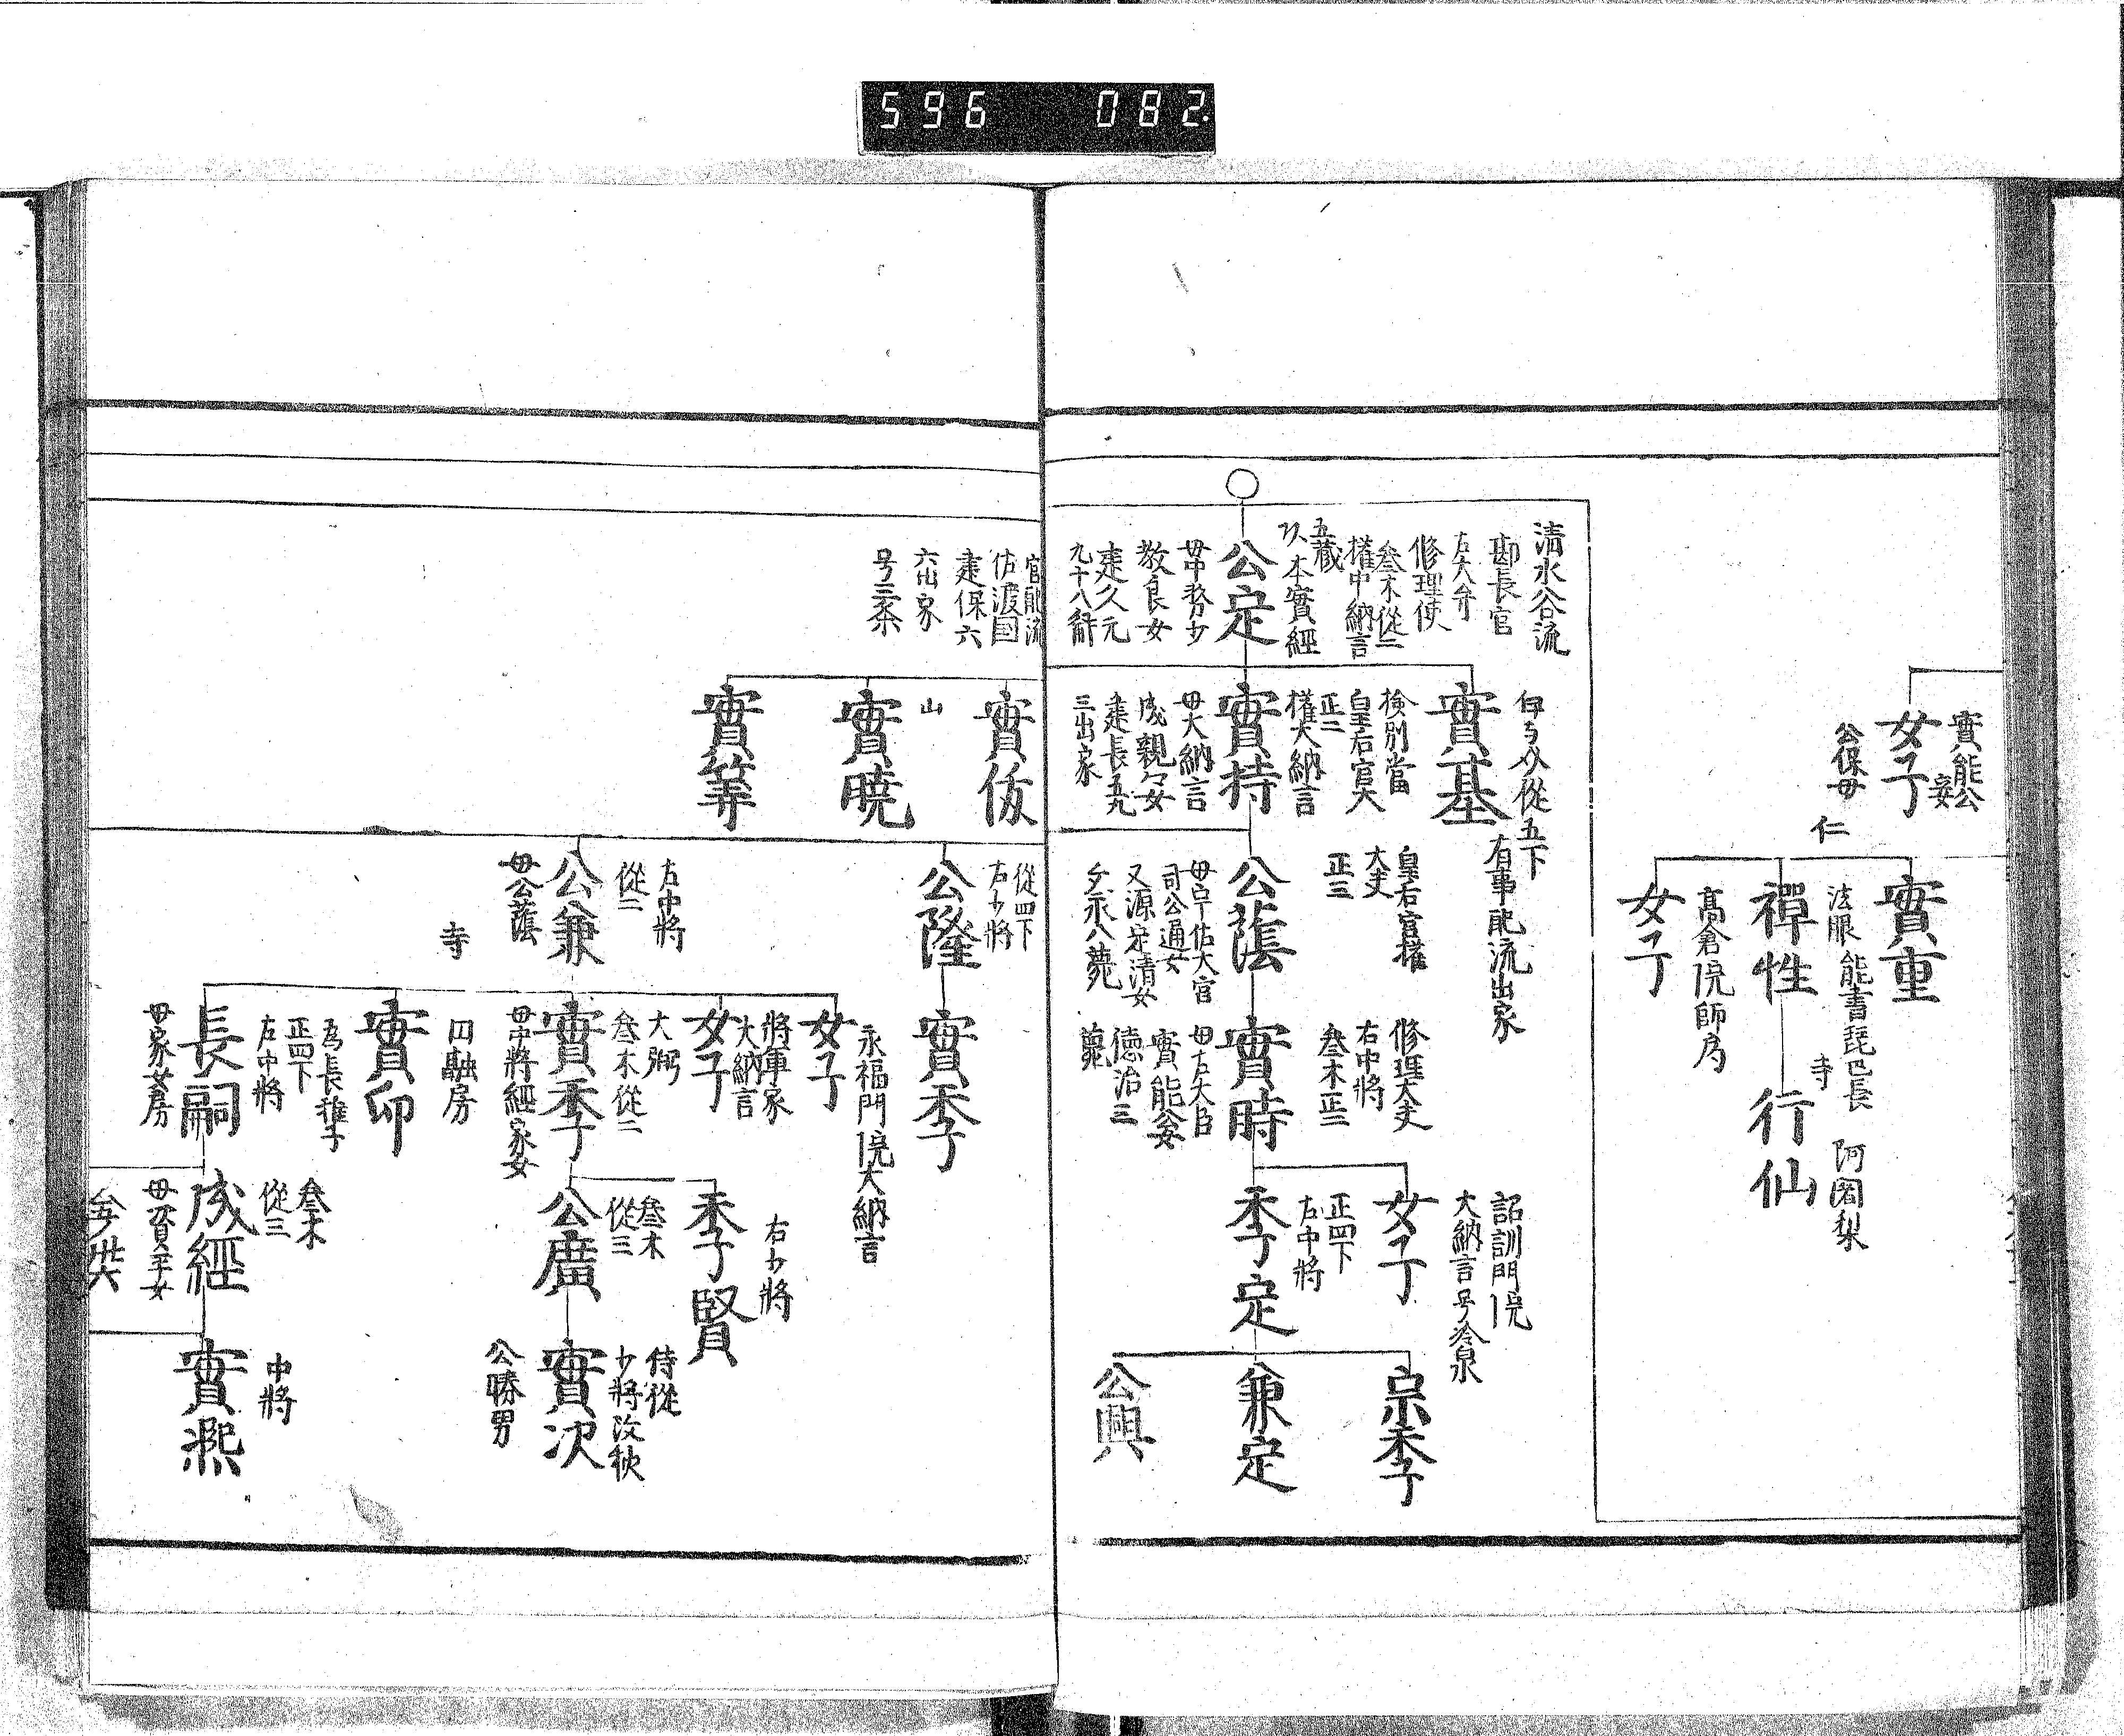 596 082.
實能公
妾
女子
公保母
仁
實重
法眼 能書琵巴長
禪性
寺
阿闍梨
行仙
髙倉院師局
女子
清水谷流
勘長官
左大弁
修理使
叁木從二
權中納言
五蔵
以本實經
公定
母中務少
教良女
建久元
九十八辭
官配流
佐渡国
建保六
六出家
号三条
從五下
有事配流出家
實基
檢別當
皇后宮大
正二
權大納言
實持
母大納言
成親々女
建長五九
三出家
實伭
山
實曉
實筭
皇后宮權
大夫
正三
公蔭
母宇佐大宮
司公通女
又源定清女
文永八薨
從四下
右少將
公隆
左中將
從二
公兼
母公蔭
修理大夫
右中將
叁木正三
實時
母左大臣
實能妾
德治三
薨
實季
永福門院大納言
女子
將軍家
大納言
女子
大弼
叁木從二
實季
母中將經家女
寺
円融房
實印
為長雅子
正四下
左中將
長嗣
母家女房
詔訓門院
大納言号冷泉
女子
正四下
左中將
季定
右少將
季賢
叁木
從三
公廣
叁木
從三
成經
宗季
兼定
公興
侍從
少將改秋
實次
公勝男
中將
實熈